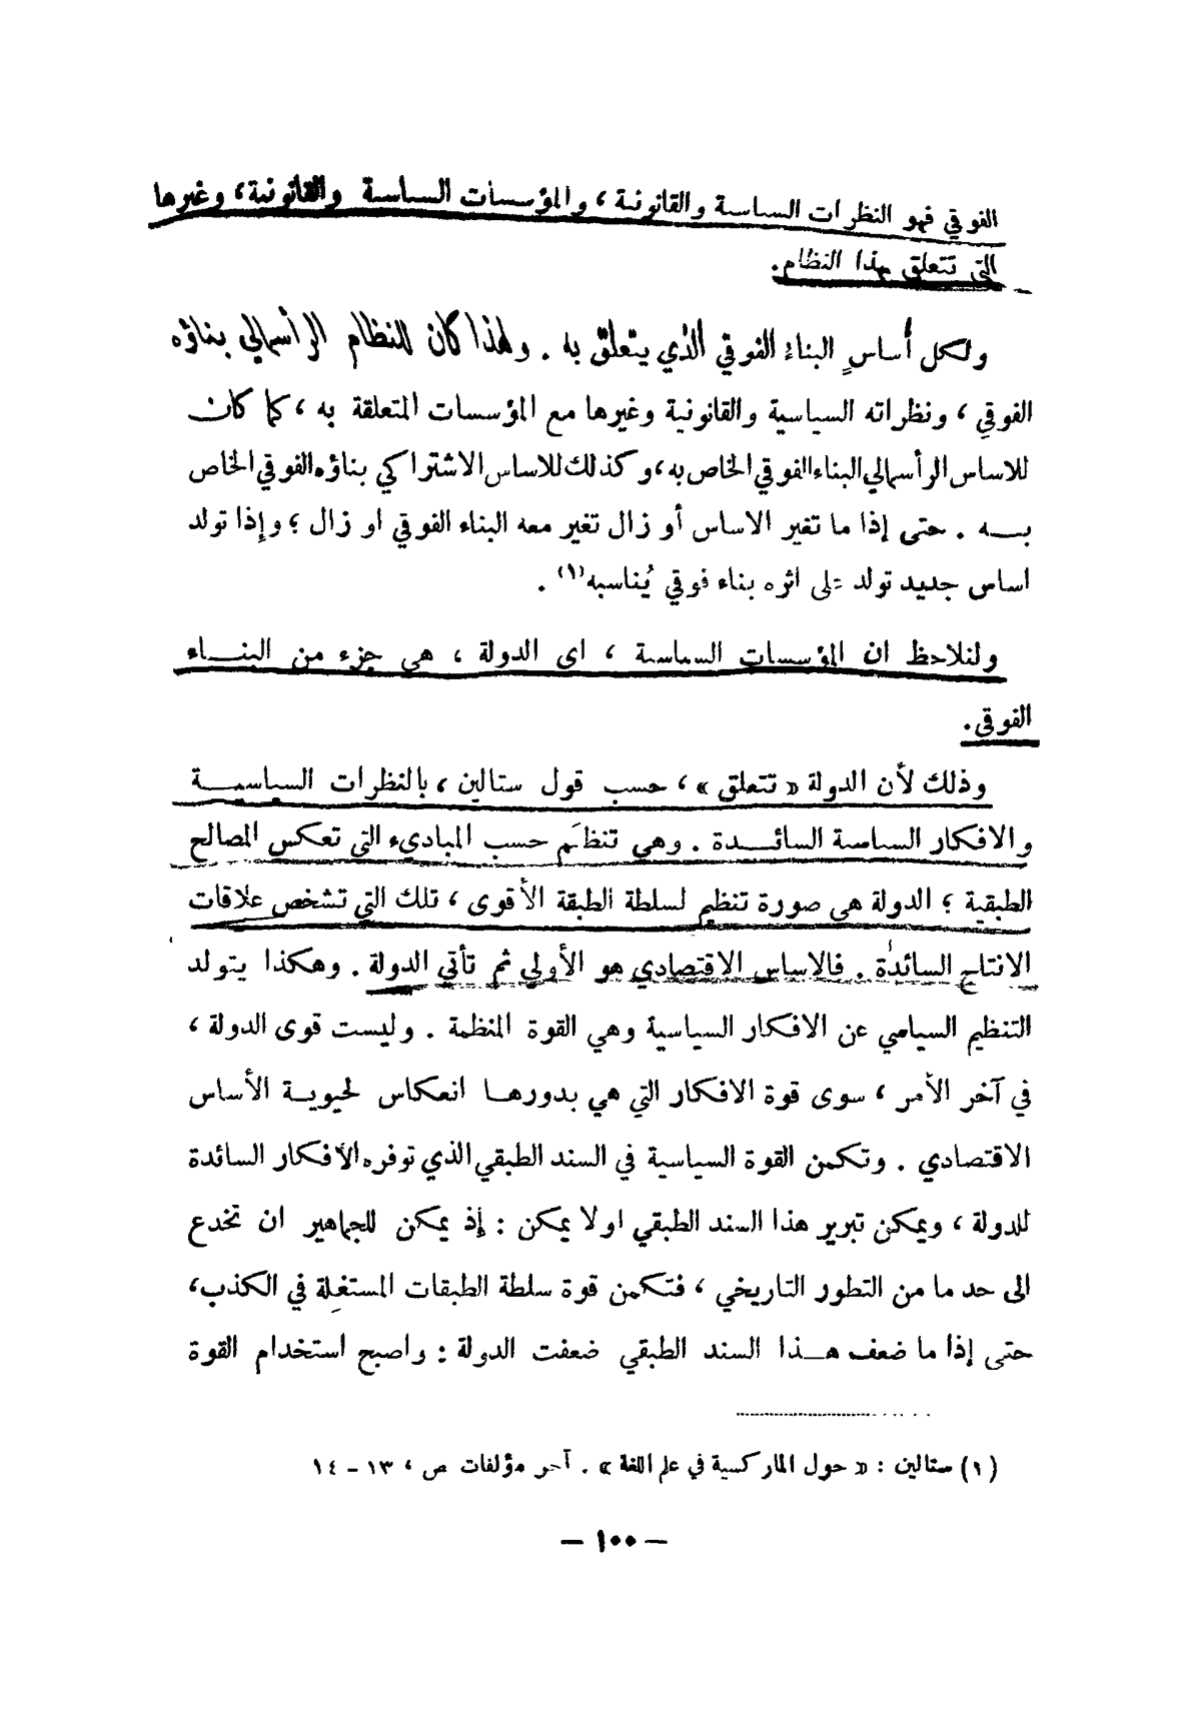 الفوقي فهو النظرات السياسية والقانونية ، والمؤسسات السياسية والقانونية ، وغيرها
التي تتعلق بهذا النظام .
ولكل أساسٍ البناءُ الفوقي الذي يتعلق به . ولهذا كان للنظام الرأسمالي بناؤه
الفوقي ، ونظراته السياسية والقانونية وغيرها مع المؤسسات المتعلقة به ، كما كان
للاساس الرأسمالي البناء الفوقي الخاص به ، وكذلك للاساس الاشتراكي بناؤه الفوقي الخاص
بـه . حتى إذا ما تغير الاساس أو زال تغير معه البناء الفوقي او زال ؛ وإذا تولد
اساس جديد تولد على اثره بناء فوقي يُناسبه (١) .
ولنلاحظ ان المؤسسات السياسية ، اي الدولة ، هي جزء من البنـــاء
الفوقي .
وذلك لأن الدولة « تتعلق » ، حسب قول ستالين ، بالنظرات السياسيـــة
والافكار السياسية السائـــدة . وهي تنظَم حسب المباديء التي تعكس المصالح
الطبقية ؛ الدولة هي صورة تنظيم لسلطة الطبقة الأقوى ، تلك التي تشخص علاقات
الانتاج السائدة . فالاساس الاقتصادي هو الأولي ثم تأتي الدولة . وهكذا يتولد
التنظيم السياسي عن الافكار السياسية وهي القوة المنظمة . وليست قوى الدولة ،
في آخر الأمر ، سوى قوة الافكار التي هي بدورهـا انعكاس لحيويـة الأساس
الاقتصادي . وتكمن القوة السياسية في السند الطبقي الذي توفره الأفكار السائدة
للدولة ، ويمكن تبرير هذا السند الطبقي او لا يمكن : إذ يمكن للجماهير ان تخدع
الى حد ما من التطور التاريخي ، فتكمن قوة سلطة الطبقات المستغِلة في الكذب ،
حتى إذا ما ضعف هـــذا السند الطبقي ضعفت الدولة : واصبح استخدام القوة
(١) ستالين : « حول الماركسية في علم اللغة » . آخر مؤلفات ص ، ١٣ – ١٤
– ١٠٠ –